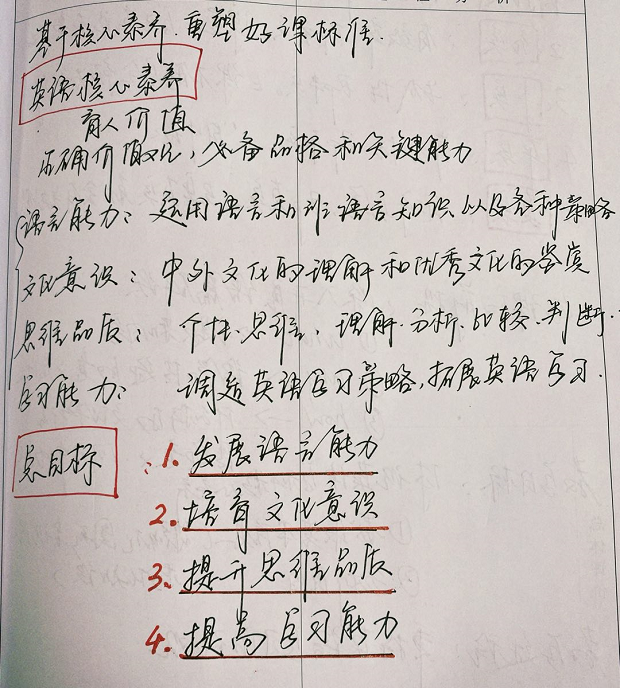 基于核心素养.重塑好课标准.
英语核心素养
育人价值
正确价值观,必备品格和关键能力
语言能力:运用语言和非语言知识以及各种策略
文化意识:中外文化的理解和优秀文化的鉴赏
思维品质:个性思维,理解.分析.比较.判断.
学习能力:调适英语学习策略,拓展英语学习.
总目标:1.发展语言能力
2.培育文化意识
3.提升思维品质
4.提高学习能力